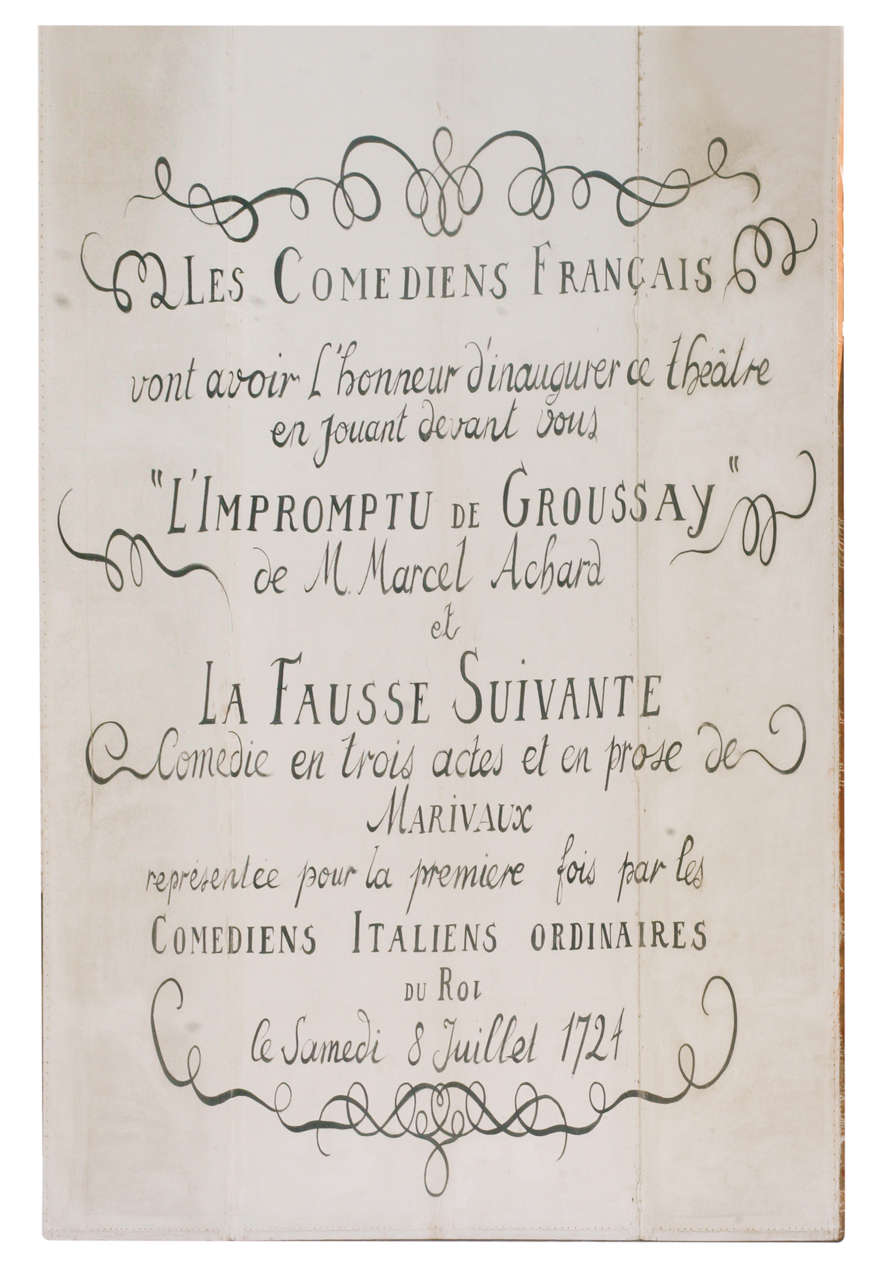 LES COMEDIENS FRANÇAIS
vont avoir l'honneur d'inaugurer ce théâtre
en jouant devant vous
"L'IMPROMPTU DE GROUSSAY"
de M. Marcel Achard
et
LA FAUSSE SUIVANTE
Comedie en trois actes et en prose de
MARIVAUX
représentée pour la premiere fois par les
COMEDIENS ITALIENS ORDINAIRES
DU ROI
le Samedi 8 Juillet 1724